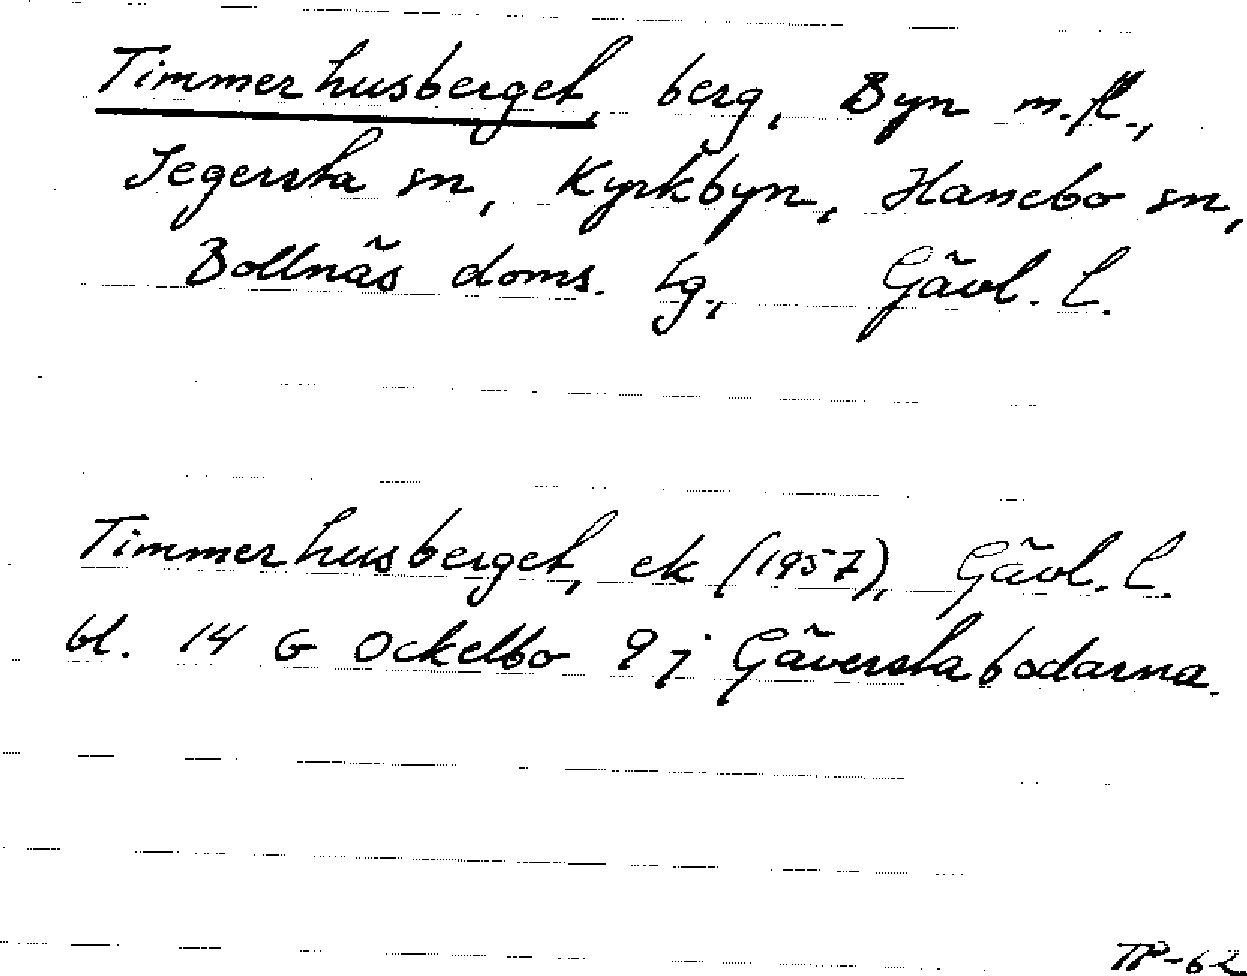 Timmerhusberget, berg, Byn m.fl.,
Segersta sn, Kyrkbyn, Hanebo sn,
Bollnäs doms. lg, Gävl. l.
Timmerhusberget, ek (1957), Gävl. l.
bl. 14 G Ockelbo 9 j Gäverstabodarna.
TP-62